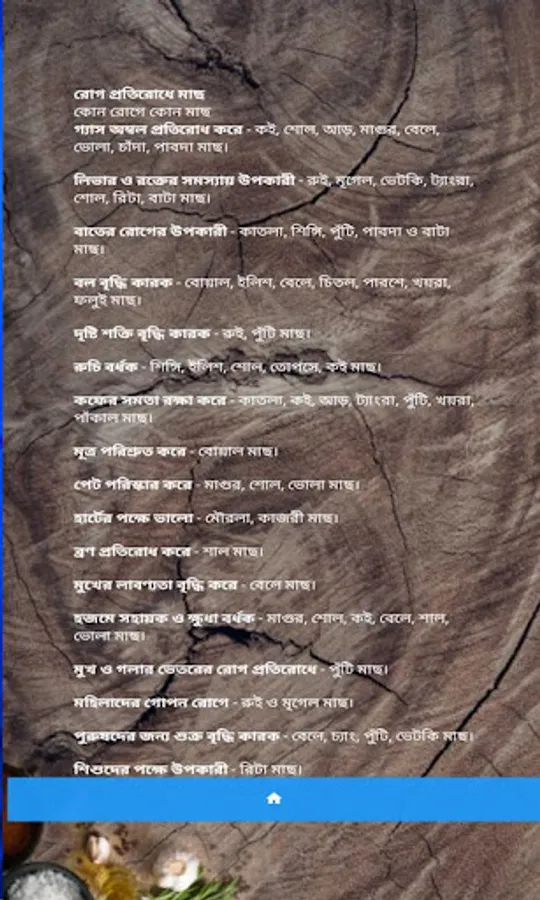 রোগ প্রতিরোধে মাছ
কোন রোগে কোন মাছ
গ্যাস অম্বল প্রতিরোধ করে - কই, শোল, আড়, মাগুর, বেলে,
ভোলা, চাঁদা, পাবদা মাছ।
লিভার ও রক্তের সমস্যায় উপকারী - রুই, মৃগেল, ভেটকি, ট্যাংরা,
শোল, রিটা, বাটা মাছ।
বাতের রোগের উপকারী - কাতলা, শিঙ্গি, পুঁটি, পাবদা ও বাটা
মাছ।
বল বৃদ্ধি কারক - বোয়াল, ইলিশ, বেলে, চিতল, পারশে, খয়রা,
ফলুই মাছ।
দৃষ্টি শক্তি বৃদ্ধি কারক - রুই, পুঁটি মাছ।
রুচি বর্ধক - শিঙ্গি, ইলিশ, শোল, তোপসে, কই মাছ।
কফের সমতা রক্ষা করে - কাতলা, কই, আড়, ট্যাংরা, পুঁটি, খয়রা,
পাঁকাল মাছ।
মূত্র পরিশ্রুত করে - বোয়াল মাছ।
পেট পরিস্কার করে - মাগুর, শোল, ভোলা মাছ।
হার্টের পক্ষে ভালো - মৌরলা, কাজরী মাছ।
ব্রণ প্রতিরোধ করে - শাল মাছ।
মুখের লাবণ্যতা বৃদ্ধি করে - বেলে মাছ।
হজমে সহায়ক ও ক্ষুধা বর্ধক - মাগুর, শোল, কই, বেলে, শাল,
ভোলা মাছ।
মুখ ও গলার ভেতরের রোগ প্রতিরোধে - পুঁটি মাছ।
মহিলাদের গোপন রোগে - রুই ও মৃগেল মাছ।
পুরুষদের জন্য শুক্র বৃদ্ধি কারক - বেলে, চ্যাং, পুঁটি, ভেটকি মাছ।
শিশুদের পক্ষে উপকারী - রিটা মাছ।